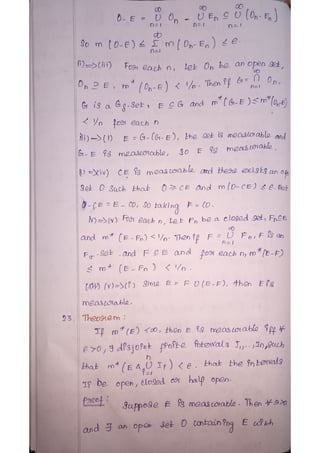 ∞ ∞ ∞
O - E = ∪ On - ∪ En ⊆ ∪ (On - En)
n=1 n=1 n=1
So m (O-E) ≤ Σ m (On - En) ≤ ε
(i)=>(iii) For each n, let On be an open set,
On ⊇ E, m* (On-E) < 1/n. Then if G = ∩ On.
G is a Gδ-set, E ⊆ G and m* (G-E) ≤ m* (On-E)
< 1/n for each n
(iii)->(i) E = G-(G-E), the set is measurable and
G-E is measurable, so E is measurable.
CE is measurable and there exists an open
set O such that O ⊇ CE and m(O-CE) ≤ ε. But
O-CE = E - CO, so taking F = CO.
For each n, Let Fn be a closed set, Fn⊆E
and m* (E-Fn) < 1/n. Then if F = ∪ Fn, F is an
Fσ-set and F ⊆ E and for each n, m* (E-F)
≤ m* (E-Fn) < 1/n.
(v)->(i) Since E = F ∪ (E-F), then E is
measurable.
23. Theorem:
If m*(E) < ∞, then E is measurable iff ∀
ε>0, ∃ disjoint finite intervals I1,..., In, such
that m* (E Δ ∪ Ii) < ε. that the intervals
Ii be open, closed or half open.
Proof:
Suppose E is measurable. Then ∀ ε>0
and ∃ an open set O containing E with